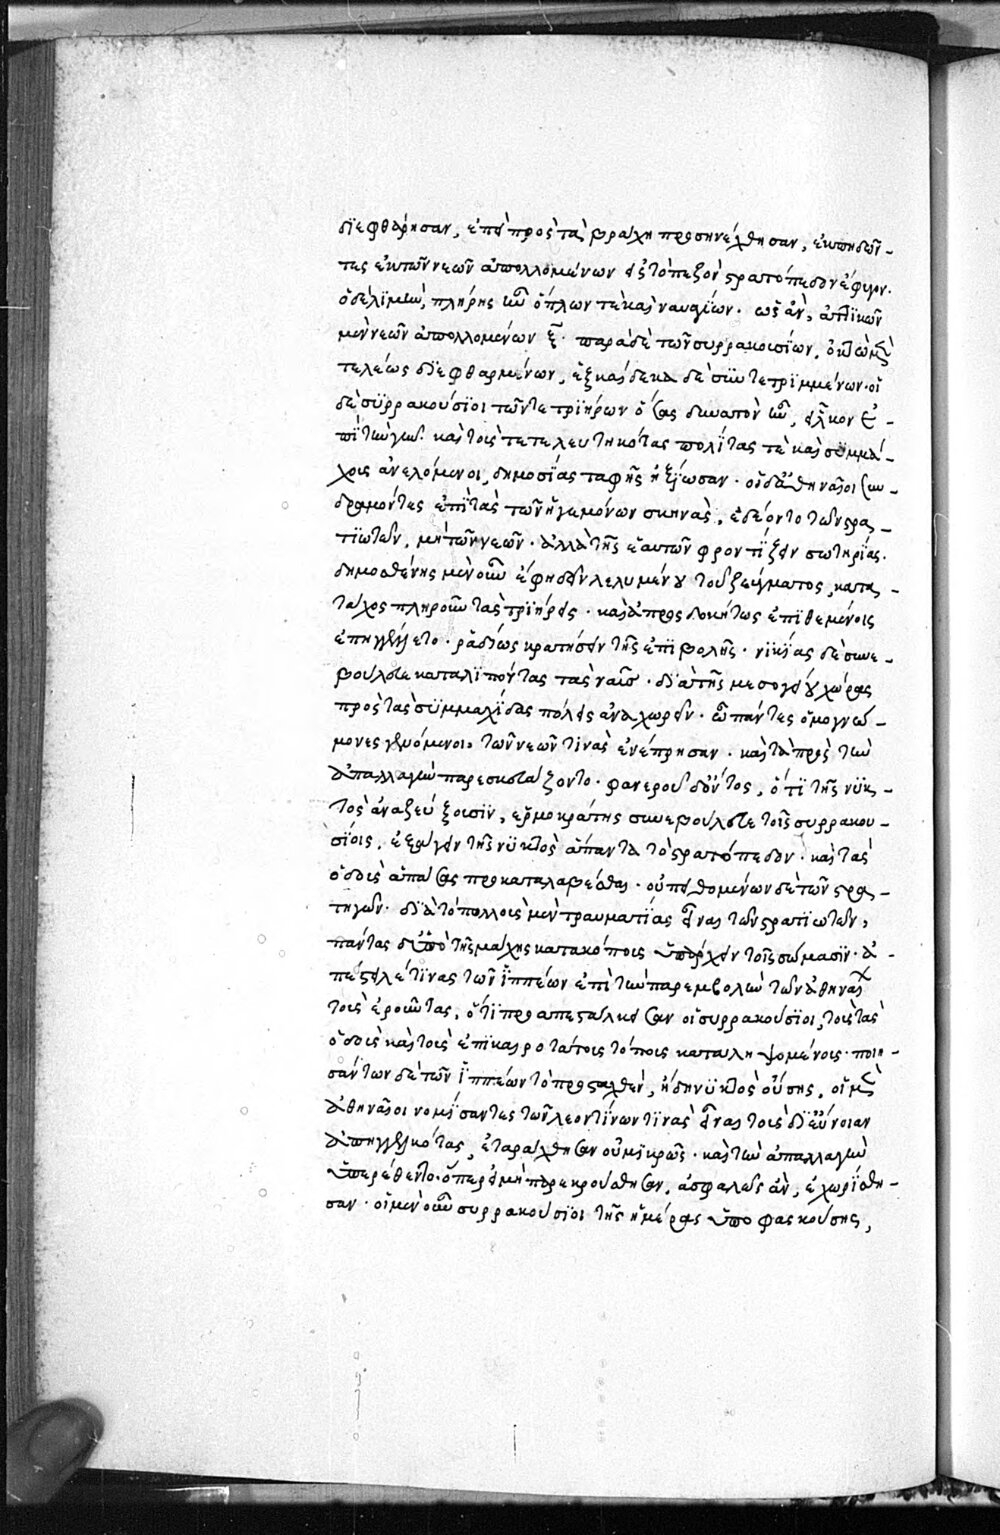 διεφθάρησαν, ἐπεὶ πρὸς τὰ βράχη προσηνέχθησαν, ἐκπηδῶν-
τες ἐκ τῶν νεῶν ἀπολλομένων εἰς τὸ πεζὸν στρατόπεδον ἔφυγον.
ὁ δὲ λιμὴν, πλήρης ἦν ὅπλων τὲ καὶ ναυαγίων. ὡς ἂν, ἀττικῶν
μὲν νεῶν ἀπολλομένων ξ. παρὰ δὲ τῶν συρρακουσίων, ὀκτὼ μὲν
τελέως διεφθαρμένων, ἑξκαίδεκα δὲ συντετριμμένων. οἱ
δὲ συρρακούσιοι τῶν τε τριήρων ὅσας δυνατὸν ἦν, εἷλκον ἐ-
πὶ τὴν γῆν. καὶ τοὺς τετελευτηκότας πολίτας τὲ καὶ συμμά-
χους ἀνελόμενοι, δημοσίας ταφῆς ἠξίωσαν. οἱ δ' ἀθηναῖοι συν-
δραμόντες ἐπὶ τὰς τῶν ἡγεμόνων σκηνὰς, ἐδέοντο τῶν στρα-
τιωτῶν, μὴ τῶν νεῶν. ἀλλὰ τῆς ἑαυτῶν φροντίζειν σωτηρίας.
δημοσθένης μὲν οὖν ἔφη δεῖν λελυμένου τοῦ ζεύγματος, κατα-
τάχος πληροῦν τὰς τριήρεις. καὶ ἀπροσδοκήτως ἐπιθεμένοις
ἐπηγγέλλετο. ῥαδίως κρατήσειν τῆς ἐπιβολῆς. νικίας δὲ συνε-
βούλευε καταλιπόντας τὰς ναῦς. διὰ τῆς μεσογείου χώρας
πρὸς τὰς συμμαχίδας πόλεις ἀναχωρεῖν. ὧ πάντες ὁμογνώ-
μονες γενόμενοι, τῶν νεῶν τινὰς ἐνέπρησαν. καὶ τὰ πρὸς τὴν
ἀπαλλαγὴν παρεσκευάζοντο. φανεροῦ δ' ὄντος, ὅτι τῆς νυκ-
τὸς ἀναζεύξουσιν, ἑρμοκράτης συνεβούλευε τοῖς συρρακου-
σίοις, ἐξάγειν τῆς νυκτὸς ἅπαντα τὸ στρατόπεδον. καὶ τὰς
ὁδοὺς ἁπάσας προκαταλαβέσθαι. οὐ πειθομένων δὲ τῶν στρα-
τηγῶν. διὰ τὸ πολλοὺς μὲν τραυματίας εἶναι τῶν στρατιωτῶν,
πάντας δ' ὑπὸ τῆς μάχης κατακόπους ὑπάρχειν τοῖς σώμασιν. ἀ-
πέστειλέ τινας τῶν ἱππέων ἐπὶ τὴν παρεμβολὴν τῶν ἀθηναίων
τοὺς ἐροῦντας, ὅτι προαπεστάλκεισαν οἱ συρρακούσιοι, τοὺς τὰς
ὁδοὺς καὶ τοὺς ἐπικαιροτάτους τόπους καταληψομένους. ποιη-
σάντων δὲ τῶν ἱππέων τὸ προσταχθὲν, ἤδη νυκτὸς οὔσης, οἱ μὲν
ἀθηναῖοι νομίσαντες τῶν λεοντίνων τινὰς εἶναι τοὺς δι' εὔνοιαν
ἀπηγγελκότας, ἐταράχθησαν οὐ μικρῶς. καὶ τὴν ἀπαλλαγὴν
ὑπερέθεντο. ὅπερ εἰ μὴ παρεκρούσθησαν, ἀσφαλῶς ἂν, ἐχωρίσθη-
σαν. οἱ μὲν οὖν συρρακούσιοι τῆς ἡμέρας ὑποφασκούσης,